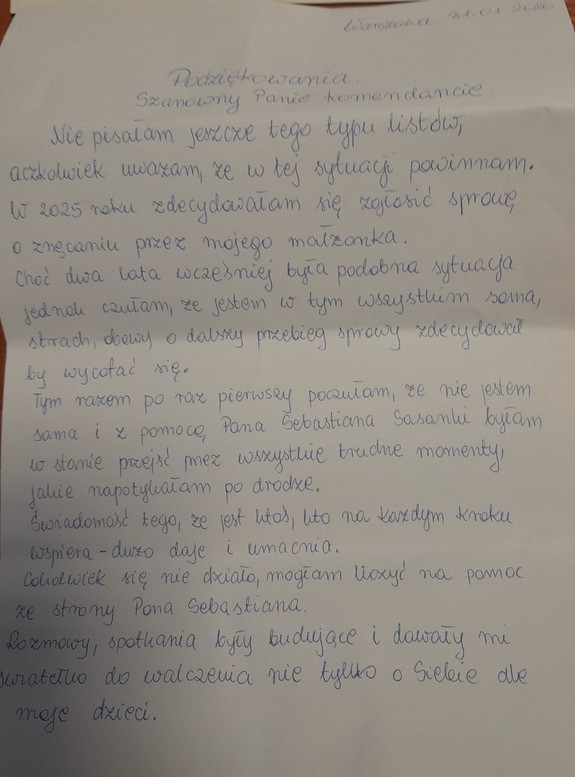 Warszawa 21.01.2026
Podziękowania
Szanowny Panie Komendancie
Nie pisałam jeszcze tego typu listów,
aczkolwiek uważam, że w tej sytuacji powinnam.
W 2025 roku zdecydowałam się zgłosić sprawę
o znęcaniu przez mojego małżonka.
Choć dwa lata wcześniej była podobna sytuacja
jednak czułam, że jestem w tym wszystkim sama,
strach, obawy o dalszy przebieg sprawy zdecydował
by wycofać się.
Tym razem po raz pierwszy poczułam, że nie jestem
sama i z pomocą Pana Sebastiana Sasanki byłam
w stanie przejść przez wszystkie trudne momenty,
jakie napotykałam po drodze.
Świadomość tego, że jest ktoś, kto na każdym kroku
wspiera - dużo daje i umacnia.
Cokolwiek się nie działo, mogłam liczyć na pomoc
ze strony Pana Sebastiana.
Rozmowy, spotkania były budujące i dawały mi
światełko do walczenia nie tylko o Siebie ale
moje dzieci.